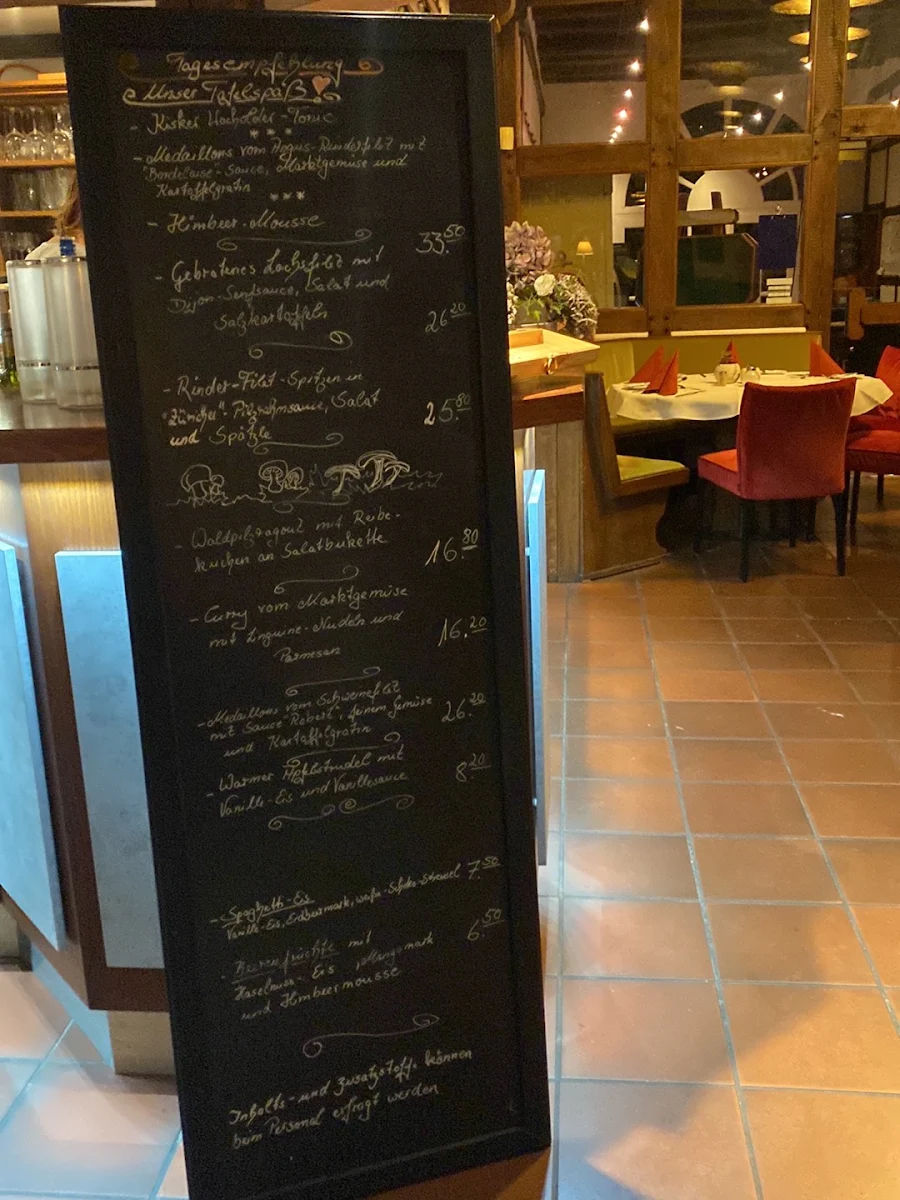 Tagesempfehlung
Unser Tafelspaß
- Kisker Wacholder-Tonic
***
- Medaillons vom Angus-Rinderfilet mit
Bordelaise-Sauce, Marktgemüse und
Kartoffelgratin
***
- Himbeer-Mousse
33.50
- Gebratenes Lachsfilet mit
Dijon-Senfsauce, Salat und
Salzkartoffeln
26.20
- Rinder-Filet-Spitzen in
"Züricher" Pilzrahmsauce, Salat
und Spätzle
25.80
- Waldpilzragout mit Reibe-
kuchen an Salatbukette
16.80
- Curry vom Marktgemüse
mit Linguine-Nudeln und
Parmesan
16.20
- Medaillons vom Schweinefilet
mit Sauce "Robert", feinem Gemüse
und Kartoffelgratin
26.20
- Warmer Apfelstrudel mit
Vanille-Eis und Vanillesauce
8.20
- Spaghetti-Eis
Vanille-Eis, Erdbeermark, weiße-Schoko-Streusel 7.50
- Beerenfrüchte mit
Haselnuss-Eis, Mangomark
und Himbeermousse
6.50
Inhalts- und Zusatzstoffe können
beim Personal erfragt werden